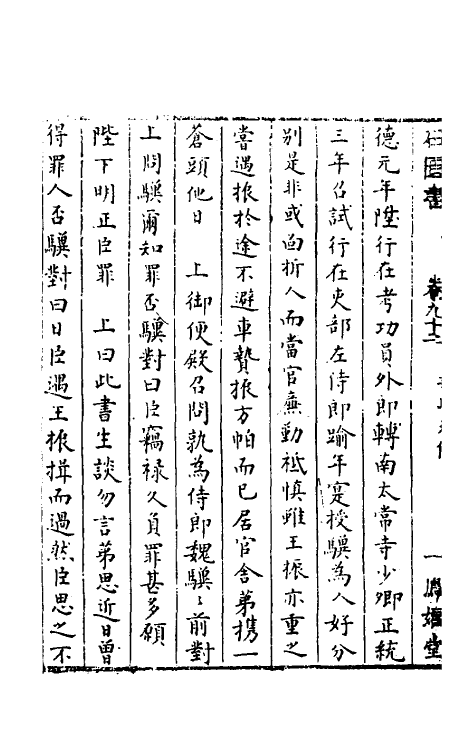 石匱書 卷九十 一 鳳嬉堂
德元年陞行在考功員外郎轉南太常寺少卿正統
三年召試行在吏部左侍郎踰年寔授驥為人好分
別是非或面折人而當官廉勤祗慎雖王振亦重之
嘗遇振於途不避車贄振方帕而已居官舍第携一
蒼頭他日 上御便殿召問孰為侍郎魏驥〻前對
上問驥爾知罪否驥對曰臣竊祿久負罪甚多願
陛下明正臣罪 上曰此書生談勿言第思近日曾
得罪人否驥對曰日臣遇王振揖而過然臣思之不